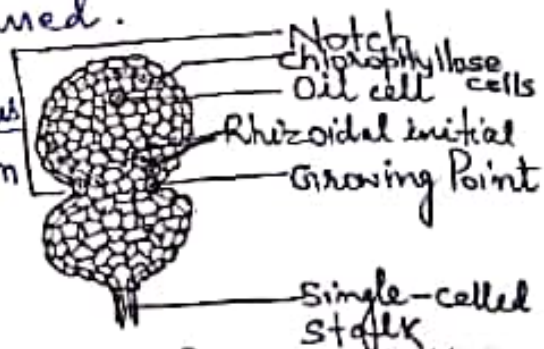 Notch
chlorophyllose
cells
Oil cell
Rhizoidal initial
Growing Point
Single-celled
stalk